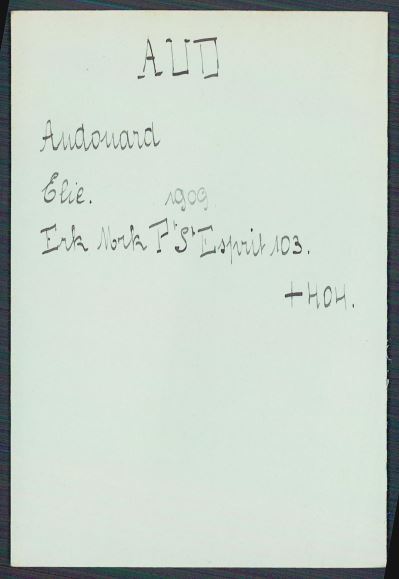 AUD
Audouard
Elie. 1909
Erk Mork Pt St Esprit 103.
+404.